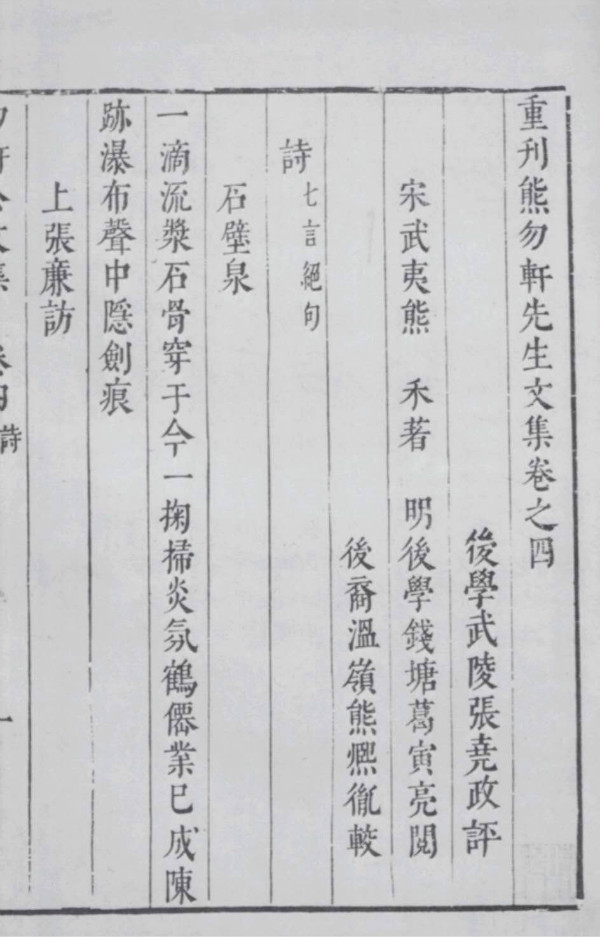 重刊熊勿軒先生文集卷之四
後學武陵張堯政評
宋武夷熊 禾著 明後學錢塘葛寅亮閱
後裔溫嶺熊熈胤較
詩七言絕句
石壁泉
一滴流漿石骨穿于今一掬掃炎氛鶴僊業已成陳
跡瀑布聲中隱劍痕
上張亷訪
勿軒公文集 卷四 詩 一